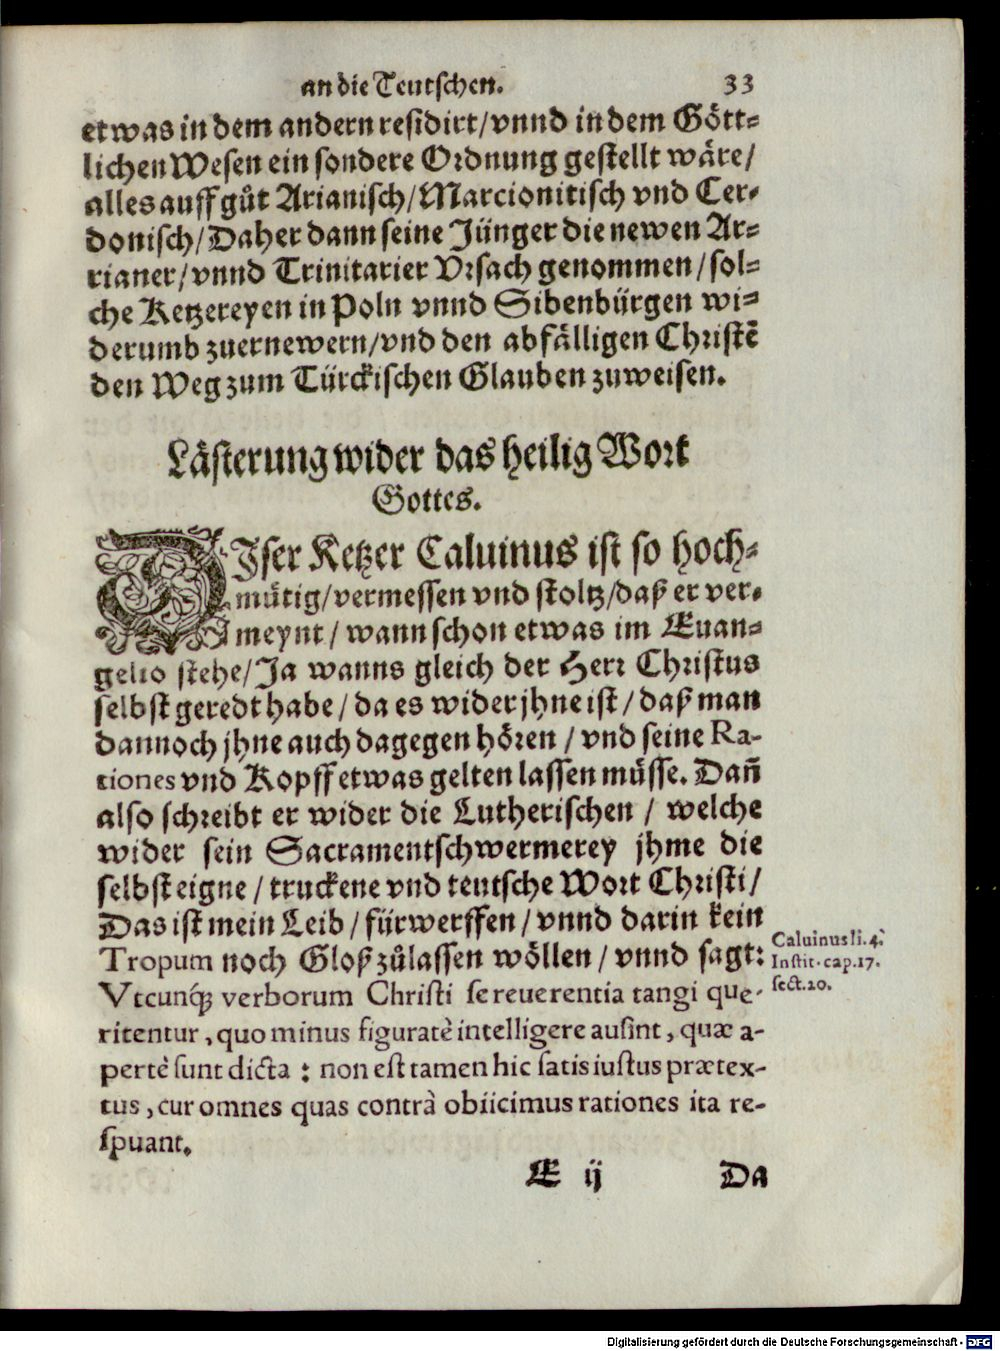 an die Teutschen. 33
etwas in dem andern residirt/vnnd in dem Gött-
lichen Wesen ein sondere Ordnung gestellt wäre/
alles auff gůt Arianisch/Marcionitisch vnd Cer-
donisch/Daher dann seine Jünger die newen Ar-
rianer/vnnd Trinitarier Vrsach genommen/sol-
che Ketzereyen in Poln vnnd Sibenbürgen wi-
derumb zuernewern/vnd den abfälligen Christē
den Weg zum Türckischen Glauben zuweisen.
Lästerung wider das heilig Wort
Gottes.
DIser Ketzer Caluinus ist so hoch-
mütig/vermessen vnd stoltz/daß er ver-
meynt/wann schon etwas im Euan-
gelio stehe/Ja wanns gleich der Herr Christus
selbst geredt habe/da es wider jhne ist/daß man
dannoch jhne auch dagegen hören/vnd seine Ra-
tiones vnd Kopff etwas gelten lassen müsse. Dañ
also schreibt er wider die Lutherischen/welche
wider sein Sacramentschwermerey jhme die
selbst eigne/truckene vnd teutsche Wort Christi/
Das ist mein Leib/fürwerffen/vnnd darin kein
Tropum noch Gloß zůlassen wöllen/vnnd sagt:
Caluinus li. 4.
Instit. cap. 17.
sect. 20.
Vtcunq́; verborum Christi se reuerentia tangi que-
ritentur, quo minus figuratè intelligere ausint, quæ a-
pertè sunt dicta: non est tamen hic satis iustus prætex-
tus, cur omnes quas contrà obiicimus rationes ita re-
spuant.
E ij Da
Digitalisierung gefördert durch die Deutsche Forschungsgemeinschaft - DFG